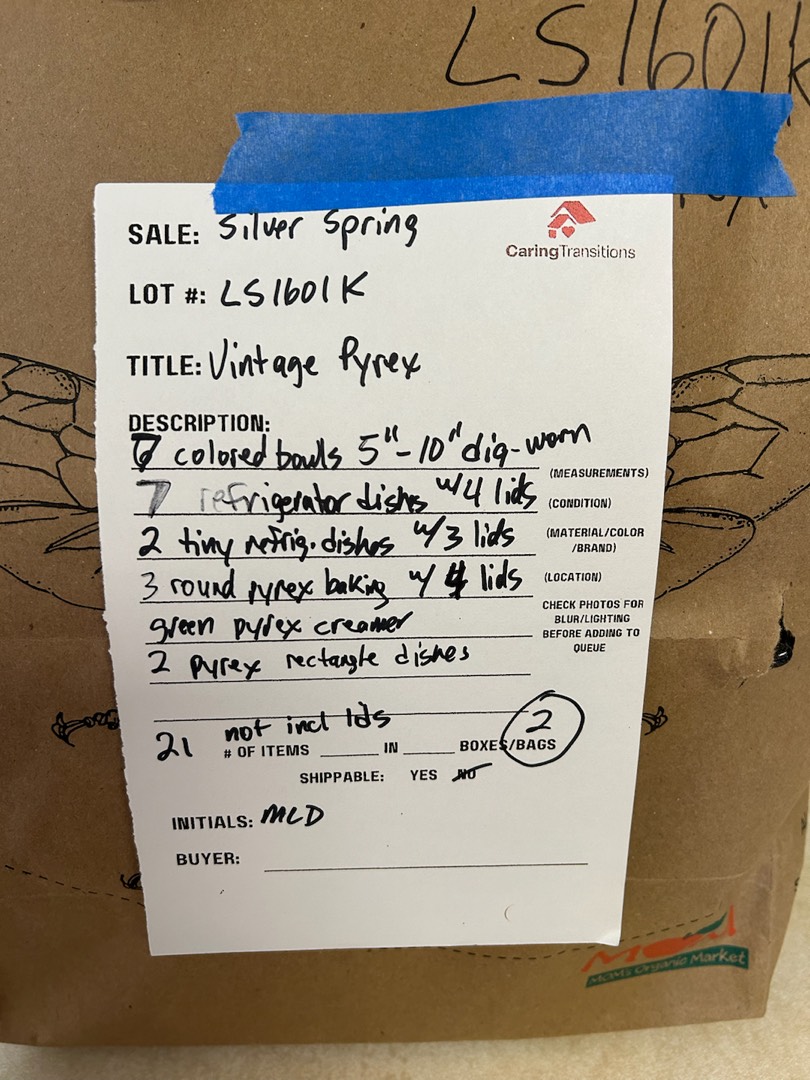 LS1601K
SALE: Silver Spring
CaringTransitions
LOT #: LS1601K
TITLE: Vintage Pyrex
DESCRIPTION:
colored bowls 5"-10" dia-worn
(MEASUREMENTS)
7 refrigerator dishes w/4 lids
(CONDITION)
2 tiny refrig. dishes w/3 lids
(MATERIAL/COLOR
/BRAND)
3 round pyrex baking w/ 4 lids
(LOCATION)
green pyrex creamer
CHECK PHOTOS FOR
BLUR/LIGHTING
BEFORE ADDING TO
QUEUE
2 pyrex rectangle dishes
not incl lds
21 # OF ITEMS ______ IN ______ BOXES/BAGS 2
SHIPPABLE: YES NO
INITIALS: MLD
BUYER:
MOM's Organic Market